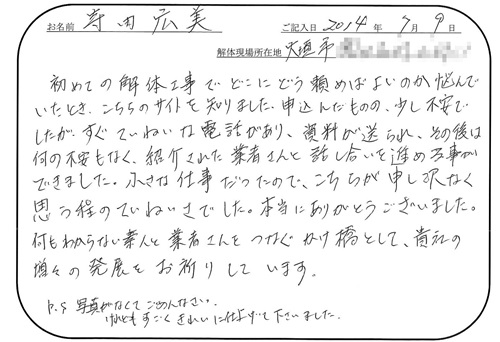 お名前 寺田広美 ご記入日 2014年 7月 9日
解体現場所在地 大垣市
初めての解体工事でどこにどう頼めばよいのか悩んで
いたとき、こちらのサイトを知りました。申込んだものの、少し不安で
したが、すぐていねいな電話があり、資料が送られ、その後は
何の不安もなく、紹介された業者さんと話し合いを進め工事が
できました。小さな仕事だったので、こちらが申し訳なく
思う程のていねいさでした。本当にありがとうございました。
何もわからない素人と業者さんをつなぐかけ橋として、貴社の
増々の発展をお祈りしています。
P.S 写真がなくてごめんなさい。
けれどもすごくきれいに仕上げて下さいました。